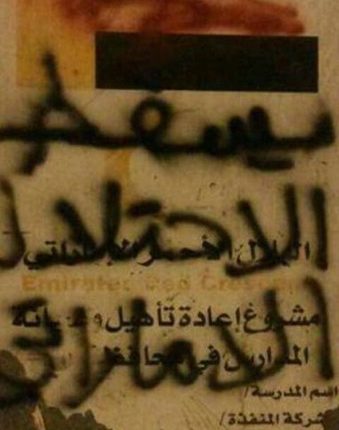 يسقط
الاحتلال
الهلال الأحمر الإماراتي
Emirates Red Crescent
الاماراتي
مشروع إعادة تأهيل وصيانة
المدارس في محافظة
اسم المدرسة/
شركة المنفذة/